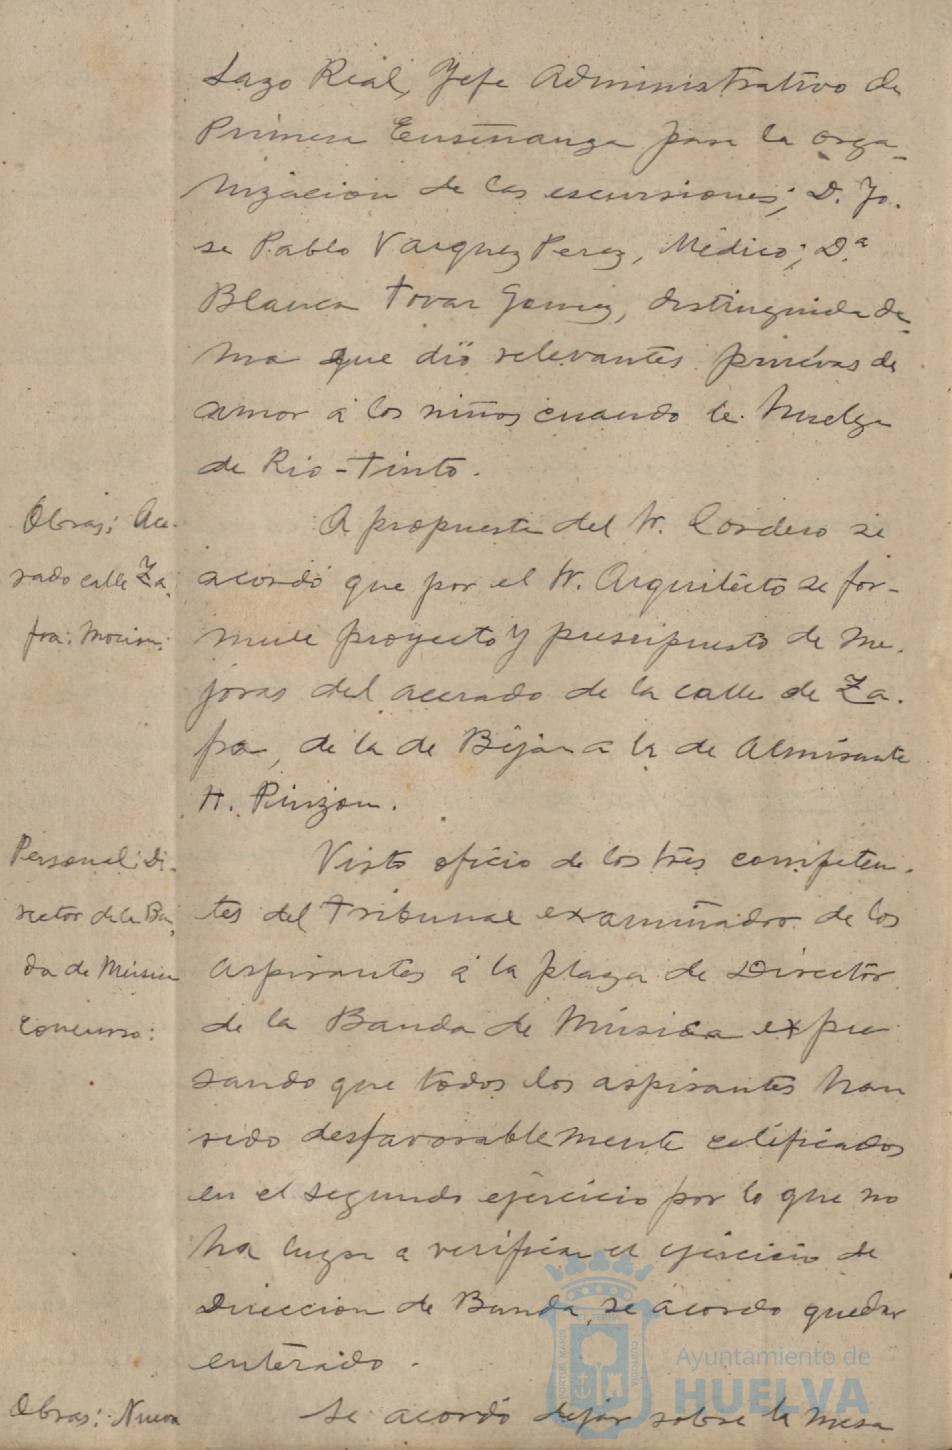 Lazo Real, Jefe Administrativo de
Primera Enseñanza para la orga-
nización de las escursiones; D. Jo-
se Pablo Vazquez Perez, Médico; D.ª
Blanca Tovar Gomez, distinguida da-
ma que dió relevantes pruévas de
amor á los niños cuando la huelga
de Rio-Tinto.
Obras: Ace-
rado calle Za-
fra: Moción:
A propuesta del Sr. Cordero se
acordó que por el Sr. Arquitecto se for-
mule proyecto y presupuesto de me-
joras del acerado de la calle de Za-
fra, de la de Béjar a la de Almirante
H. Pinzon.
Personal: Di-
rector de la Ban-
da de Música
concurso:
Visto oficio de los tres competen-
tes del Tribunal examinador de los
aspirantes á la plaza de Director
de la Banda de Música expre-
sando que todos los aspirantes han
sido desfavorablemente calificados
en el segundo ejercicio por lo que no
ha lugar a verificar el ejercicio de
Dirección de Banda, se acordó quedar
enterado.
Obras: Nueva
Se acordó dejar sobre la mesa
Ayuntamiento de
HUELVA